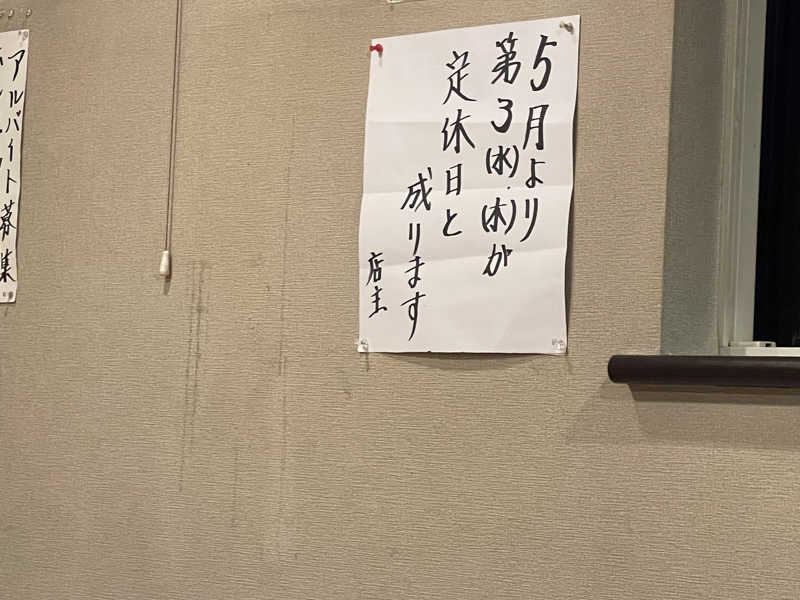 5月より
第3(水)・(木)が
定休日と
成ります
店主
アルバイト募集